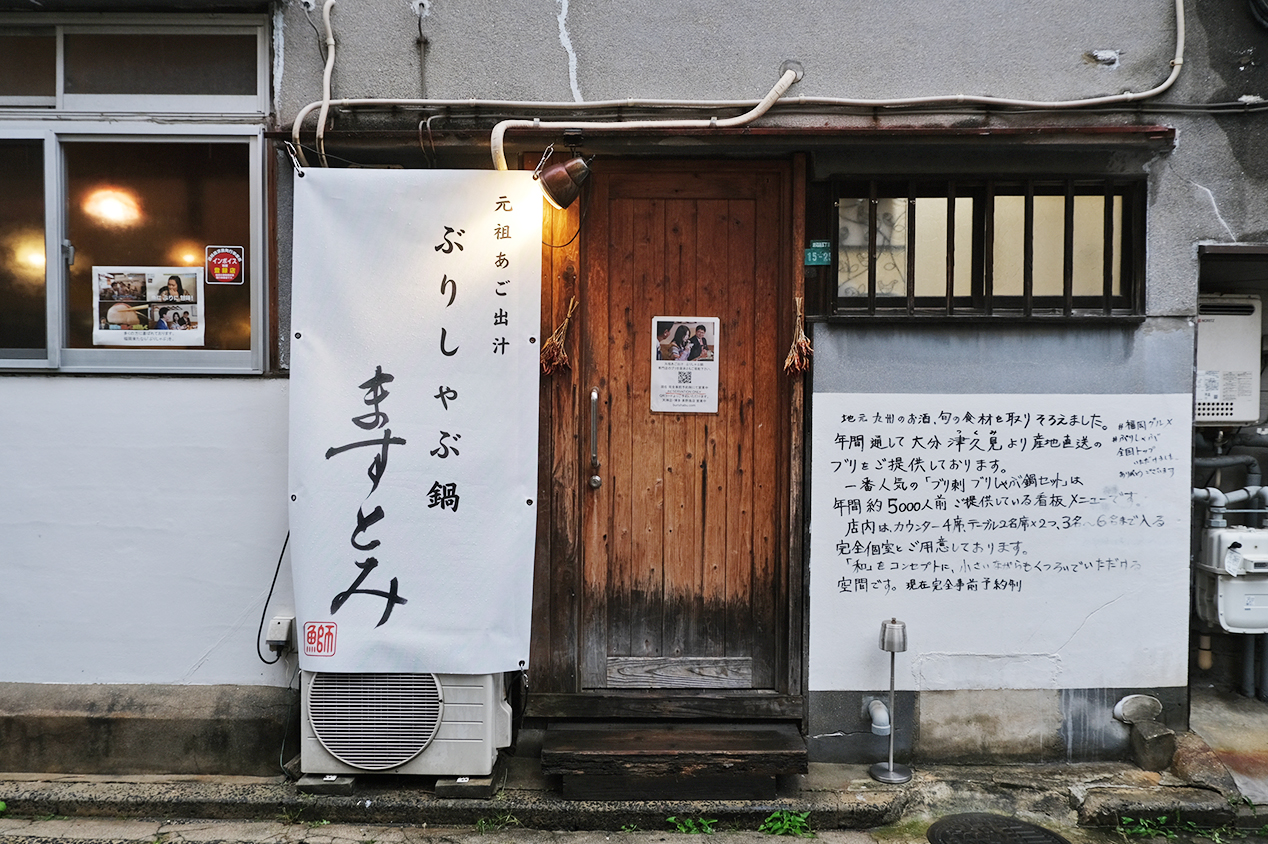 元祖あご出汁
ぶりしゃぶ鍋
ますとみ
鰤
インボイス
登録店
15-25
地元九州のお酒、旬の食材を取りそろえました。
年間通して大分津久見より産地直送の
ブリをご提供しております。
一番人気の「ブリ刺 ブリしゃぶ鍋セット」は
年間約5000人前ご提供している看板メニューです。
店内は、カウンター4席、テーブル2名席×2つ、3名~6名まで入る
完全個室をご用意しております。
「和」をコンセプトに、小さいながらもくつろいでいただける
空間です。現在完全事前予約制
#福岡グルメ
#ぶりしゃぶで
全国トップ
いただけました
ありがとうございます